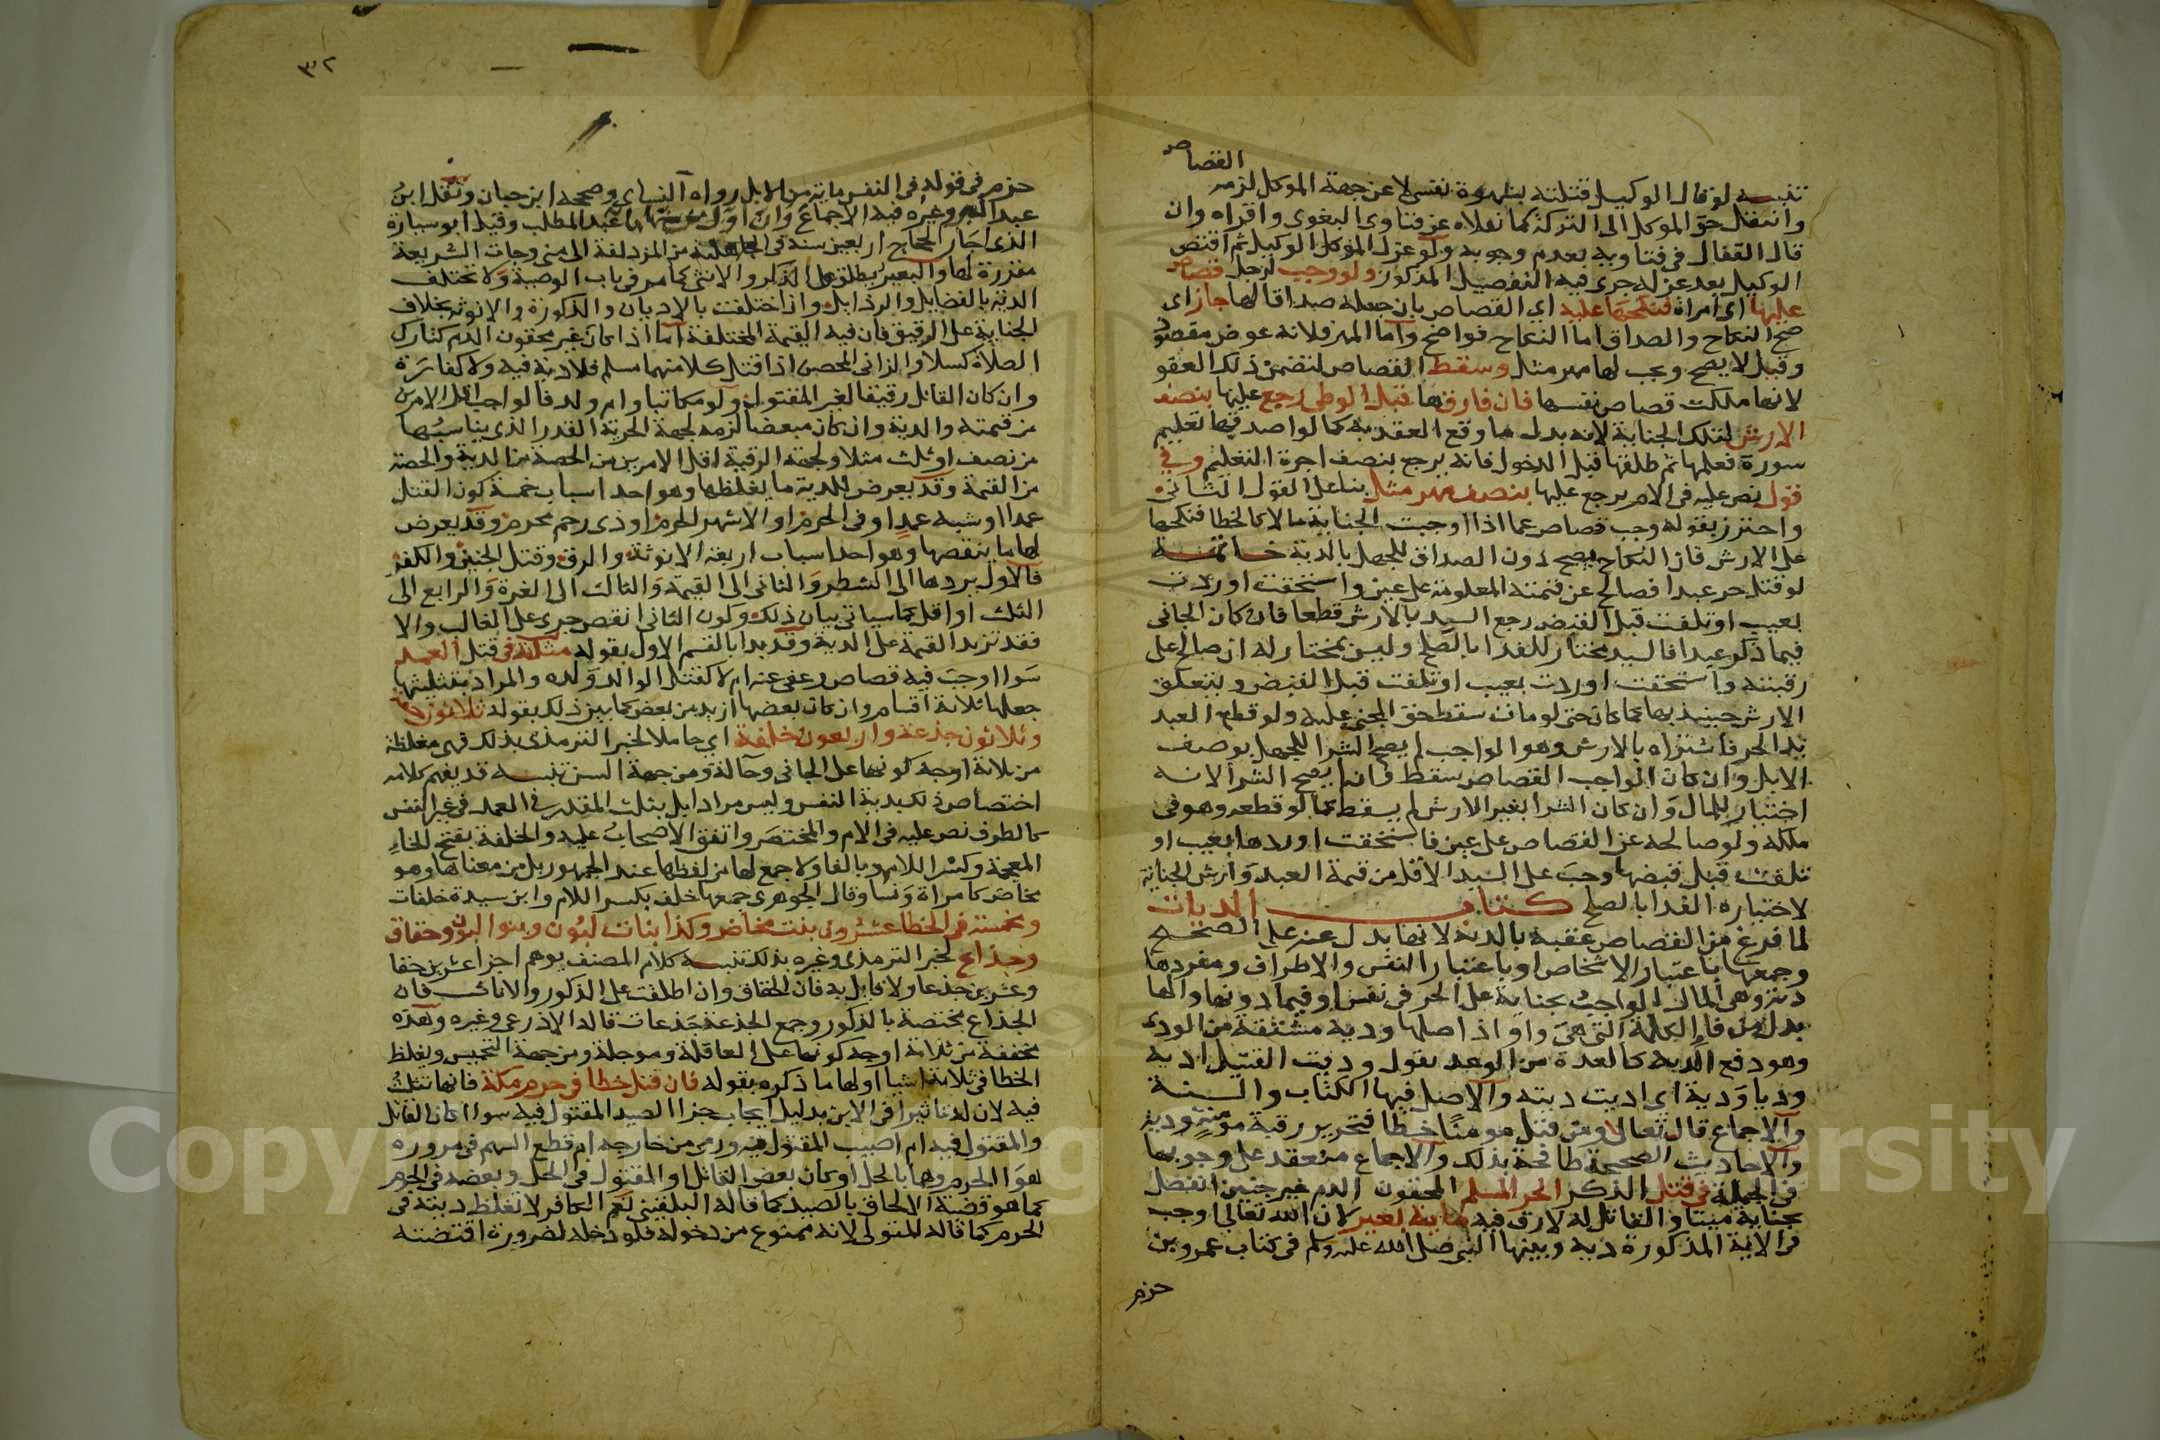 القصاص
تنبيه لو قال الوكيل قتلته بشهوة نفسي لا عن جهة الموكل لزمه
وانتقل حق الموكل الى التركة كما نقلاه عن فتاوى البغوي واقراه وان
قال القفال في فتاويه بعدم وجوبه ولو عزل الموكل الوكيل ثم اقتص
الوكيل بعد عزله جرى فيه التفصيل المذكور ولو وجب لرجل قصاص
عليها اي امراة فنكحها عليه اي القصاص بان جعله صداقا لها جاز اي
صح النكاح والصداق اما النكاح فواضح واما المهر فلانه عوض مقصود
وقيل لا يصح ويجب لها مهر مثل وسقط القصاص لتضمن ذلك العفو
لانها ملكت قصاص نفسها فان فارقها قبل الوطي رجع عليها بنصف
الارش لتلك الجناية لانه بدل ما وقع العقد به كما لو اصدقها تعليم
سورة فعلمها ثم طلقها قبل الدخول فانه يرجع بنصف اجرة التعليم وفي
قول نص عليه في الام يرجع عليها بنصف مهر مثل بناء على القول الثاني
واحترز بقوله وجب قصاص عما اذا اوجبت الجناية مالا كالخطا فنكحها
على الارش فان النكاح يصح دون الصداق للجهل بالدية خاتمة
لو قتل حر عبدا فصالح عن قيمته المعلومة على عين واستحقت او ردت
بعيب او تلفت قبل القبض رجع السيد بالارش قطعا فان كان الجاني
فيما ذكر عبدا فالسيد مختار للفدا بالصلح وليس بمختار له ان صالح على
رقبته واستحقت او ردت بعيب او تلفت قبل القبض ويتعلق
الارش حينيذ بها كما كان حتى لو مات سقط حق المجني عليه ولو قطع العبد
يد الحر فاشتراه بالارش وهو الواجب لم يصح الشرا للجهل بوصف
الابل وان كان الواجب القصاص سقط وان لم يصح الشرا لانه
اختيار للمال وان كان الشرا بغير الارش لم يسقط كما لو قطعه وهو في
ملكه ولو صالحه عن القصاص على عين فاستحقت او ردها بعيب او
تلفت قبل قبضها وجب على السيد الاقل من قيمة العبد وارش الجناية
لاختياره الفدا بالصلح كتاب الديات
لما فرغ من القصاص عقبه بالدية لانها بدل عنه على الصحيح
وجمعها باعتبار الاشخاص او باعتبار النفس والاطراف ومفردها
دية وهي المال الواجب بجناية على الحر في نفس او فيما دونها وانها
بدل من فا الكلمة التي هي واو اذ اصلها ودية مشتقة من الودي
وهو دفع الدية كالعدة من الوعد تقول وديت القتيل اديه
وديا ودية اي اديت ديته والاصل فيها الكتاب والسنة
والاجماع قال تعالى ومن قتل مومنا خطا فتحرير رقبة مومنة ودية
والاحاديث الصحيحة طافحة بذلك والاجماع منعقد على وجوبها
في الجملة في قتل الذكر الحر المسلم المحقون الدم غير جنين انفصل
بجناية ميتا والقاتل له لا رق فيه ماية بعير لان الله تعالى اوجب
في الاية المذكورة دية وبينها النبي صلى الله عليه وسلم في كتاب عمرو بن
حزم
٣٠٢
حزم في قوله في النفس ماية من الابل رواه النسايي وصححه ابن حبان ونقل ابن
عبد البر وغيره فيه الاجماع وان اول من سنها ماية عبد المطلب وقيل ابو سيارة
الذي اجاز الحاج اربعين سنة في الجاهلية من المزدلفة الى منى وجات الشريعة
مقررة لها والبعير يطلق على الذكر والانثى كما مر في باب الوصية ولا تختلف
الدية بالفضايل والرذايل وان اختلفت بالاديان والذكورة والانوثة بخلاف
الجناية على الرقيق فان فيه القيمة المختلفة اما اذا كان غير محقون الدم كتارك
الصلاة كسلا والزاني المحصن اذا قتل كلا منهما مسلم فلا دية فيه ولا كفارة
وان كان القاتل رقيقا لغير المقتول ولو مكاتبا وام ولد فالواجب اقل الامرين
من قيمته والدية وان كان مبعضا لزمه لجهة الحرية القدر الذي يناسبها
من نصف او ثلث مثلا ولجهة الرقية اقل الامرين من الحصة من الدية والحصة
من القيمة وقد يعرض للدية ما يغلظها وهو احد اسباب خمسة كون القتل
عمدا او شبه عمد او في الحرم او الاشهر الحرم او ذي رحم محرم وقد يعرض
لها ما ينقصها وهو احد اسباب اربعة الانوثة والرق وقتل الجنين والكفر
فالاول يردها الى الشطر والثاني الى القيمة والثالث الى الغرة والرابع الى
الثلث او اقل كما سياتي بيان ذلك وكون الثاني انقص جرى على الغالب والا
فقد تزيد القيمة على الدية وقد بدا بالقسم الاول بقوله مثلثة في قتل العمد
سوا اوجب فيه قصاص وعفي عنه ام لا كقتل الوالد ولده والمراد بتثليثها
جعلها ثلاثة اقسام وان كان بعضها ازيد من بعض كما بين ذلك بقوله ثلاثون حقة
وثلاثون جذعة واربعون خلفة اي حاملا لخبر الترمذي بذلك فهي مغلظة
من ثلاثة اوجه كونها على الجاني وحالة ومن جهة السن تنبيه قد يفهم كلامه
اختصاص ذلك بدية النفس وليس مرادا بل يثلث المقدر في العمد في غير النفس
كالطرف نص عليه في الام والمختصر واتفق الاصحاب عليه والخلفة بفتح الخاء
المعجمة وكسر اللام وبالفا ولا جمع لها من لفظها عند الجمهور بل من معناها وهو
مخاض كامراة ونسا وقال الجوهري جمعها خلف بكسر اللام وابن سيدة خلفات
ومخمسة في الخطا عشرون بنت مخاض وكذا بنات لبون وبنوا لبون وحقاق
وجذاع لخبر الترمذي وغيره بذلك تنبيه كلام المصنف يوهم اجزا عشرين حقا
وعشرين جذعا ولا قايل به فان الحقاق وان اطلقت على الذكور والاناث فان
الجذاع مختصة بالذكور وجمع الجذعة جذعات قاله الاذرعي وغيره وهذه
مخففة من ثلاثة اوجه كونها على العاقلة وموجلة ومن جهة التخميس ويغلظ
الخطا في ثلاثة اشيا اولها ما ذكره بقوله فان قتل خطا في حرم مكة فانها تثلث
فيه لان له تاثيرا في الامن بدليل ايجاب جزا الصيد المقتول فيه سوا اكان القاتل
والمقتول فيه ام اصيب المقتول فيه ورمي من خارجه ام قطع السهم في مروره
هوا الحرم وهما بالحل او كان بعض القاتل او المقتول في الحل وبعضه في الحرم
كما هو قضية الالحاق بالصيد كما قاله البلقيني نعم الكافر لا تغلظ ديته في
الحرم كما قاله المتولي لانه ممنوع من دخوله فلو دخله لضرورة اقتضته